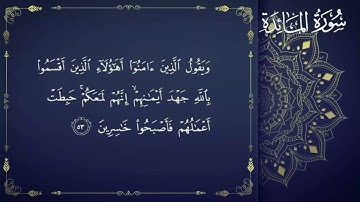 سُورَةُ المَائِدَةِ
وَيَقُولُ ٱلَّذِينَ ءَامَنُوٓا۟ أَهَٰٓؤُلَآءِ ٱلَّذِينَ أَقْسَمُوا۟
بِٱللَّهِ جَهْدَ أَيْمَٰنِهِمْ ۙ إِنَّهُمْ لَمَعَكُمْ ۚ حَبِطَتْ
أَعْمَٰلُهُمْ فَأَصْبَحُوا۟ خَٰسِرِينَ ٥٣